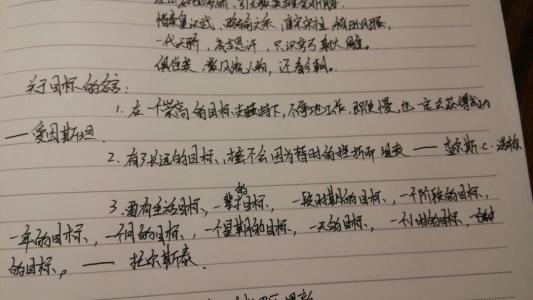 惜秦皇汉武，略输文采，唐宗宋祖，稍逊风骚，
一代天骄，成吉思汗，只识弯弓射大雕。
俱往矣，数风流人物，还看今朝。
关于目标的名言：
1. 在一个崇高的目标支持下，不停地工作，即使慢，也一定会获得成功
——爱因斯坦.
2. 有了长远的目标，才不会因为暂时的挫折而沮丧 —— 查尔斯.C.诺布
3. 要有生活目标，一辈子的目标，一段时期的目标，一个阶段的目标，
一年的目标，一个月的目标，一个星期的目标，一天的目标，一个小时的目标，
的目标。—— 托尔斯泰.